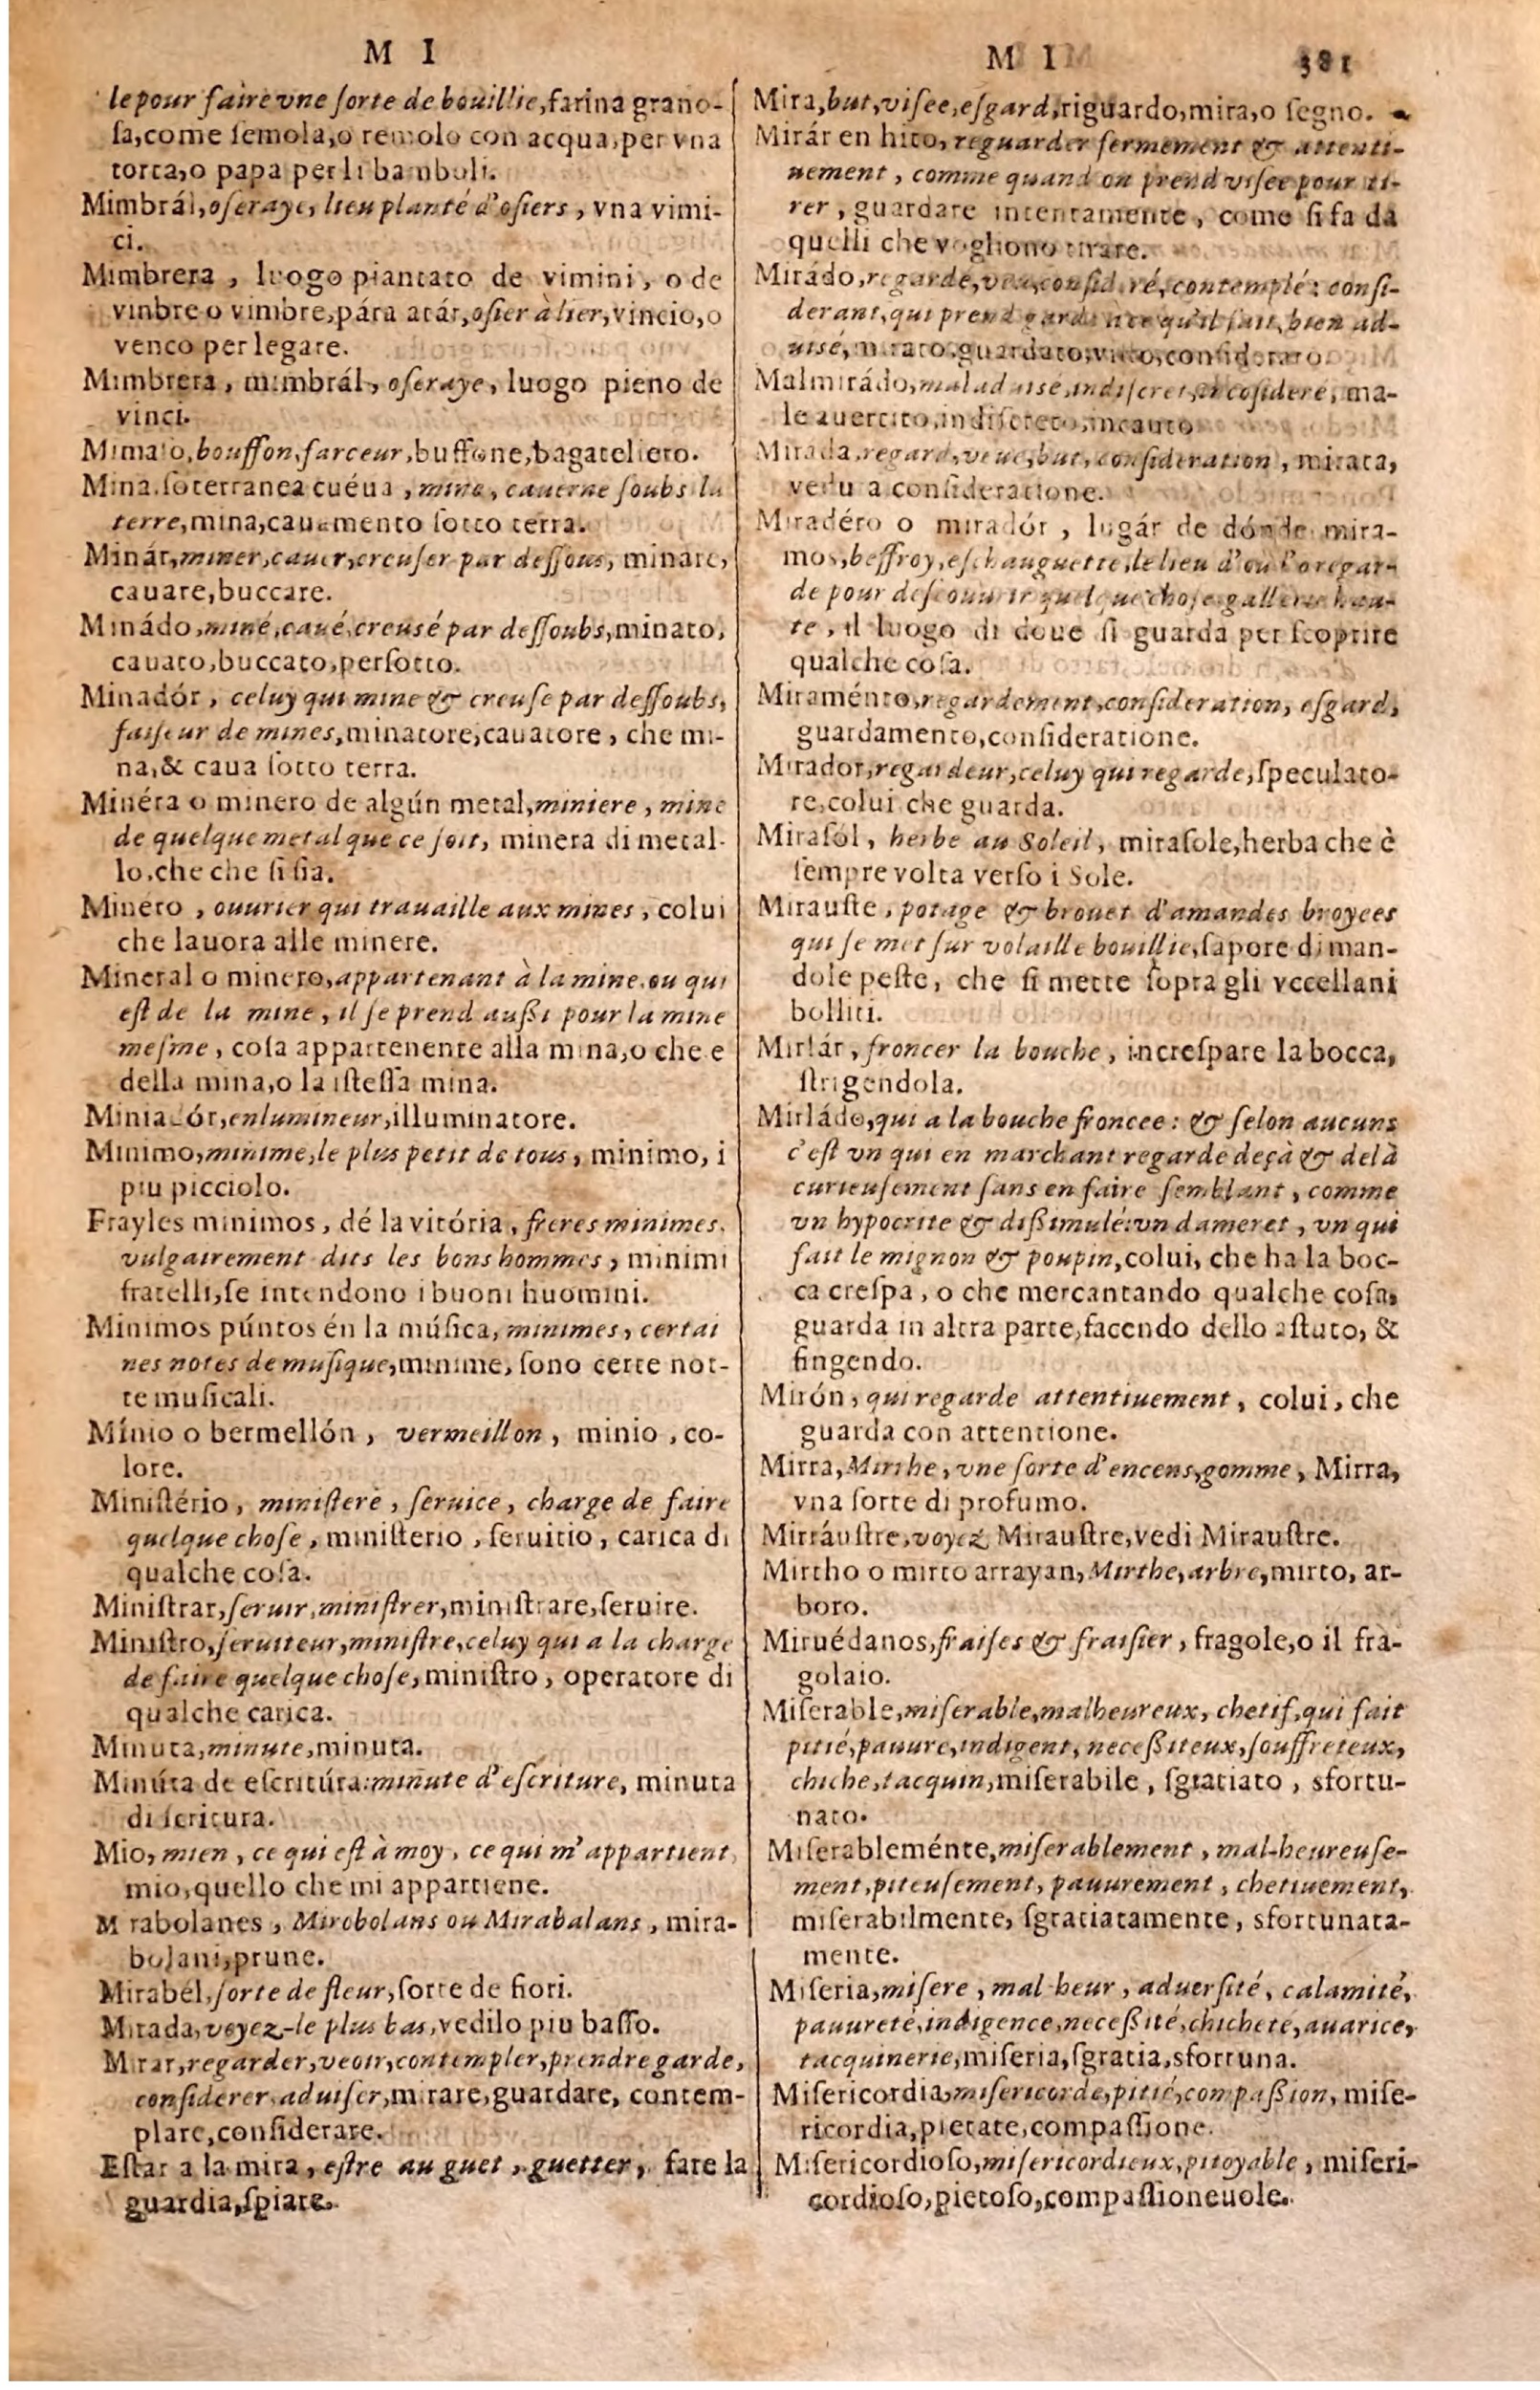 M I
le pour faire vne ſorte de bouillie, farina grano-
ſa, come ſemola, o remolo con acqua, per vna
torta, o papa per li bamboli.
Mimbrál, oſeraye, lieu planté d'oſiers, vna vimi-
ci.
Mimbrera, luogo piantato de vimini, o de
vinbre o vimbre, pára atár, oſier à lier, vincio, o
venco per legare.
Mimbrera, mimbrál, oſeraye, luogo pieno de
vinci.
Mimato, bouffon, farceur, buffone, bagateliero.
Mina. ſoterranea cuéua, mine, cauerne ſoubs la
terre, mina, cauamento ſotto terra.
Minár, miner, cauer, creuſer par deſſous, minare,
cauare, buccare.
Minádo, miné, caué, creusé par deſſoubs, minato,
cauato, buccato, perſotto.
Minadór, celuy qui mine & creuſe par deſſoubs,
faiſeur de mines, minatore, cauatore, che mi-
na, & caua ſotto terra.
Minéra o minero de algún metal, miniere, mine
de quelque metal que ce ſoit, minera di metal-
lo, che che ſi ſia.
Minero, ouurier qui trauaille aux mines, colui
che lauora alle minere.
Mineral o minero, appartenant à la mine, ou qui
eſt de la mine, il ſe prend außi pour la mine
meſme, coſa appartenente alla mina, o che e
della mina, o la iſteſſa mina.
Miniadór, enlumineur, illuminatore.
Minimo, minime, le plus petit de tous, minimo, i
piu picciolo.
Frayles minimos, dé la vitória, freres minimes,
vulgairement dits les bons hommes, minimi
fratelli, ſe intendono i buoni huomini.
Minimos púntos én la múſica, minimes, certai
nes notes de muſique, minime, ſono certe not-
te muſicali.
Mínio o bermellón, vermeillon, minio, co-
lore.
Miniſtério, miniſtere, ſeruice, charge de faire
quelque choſe, miniſterio, ſeruitio, carica di
qualche coſa.
Miniſtrar, ſeruir, miniſtrer, miniſtrare, ſeruire.
Miniſtro, ſeruiteur, miniſtre, celuy qui a la charge
de faire quelque choſe, miniſtro, operatore di
qualche carica.
Minuta, minute, minuta.
Minúta de eſcritúra: minute d'eſcriture, minuta
di ſcritura.
Mio, mien, ce qui eſt à moy, ce qui m'appartient,
mio, quello che mi appartiene.
M rabolanes, Mirobolans ou Mirabalans, mira-
bolani, prune.
Mirabél, ſorte de fleur, ſorte de fiori.
Mirada, voyez-le plus bas, vedilo piu baſſo.
Mirar, regarder, veoir, contempler, prendre garde,
conſiderer, aduiſer, mirare, guardare, contem-
plare, conſiderare.
Eſtar a la mira, eſtre au guet, guetter, fare la
guardia, ſpiare.
M I 381
Mira, but, viſee, eſgard, riguardo, mira, o ſegno.
Mirár en hito, reguarder fermement & attenti-
uement, comme quand on prend viſee pour ti-
rer, guardare intentamente, come ſi fa da
quelli che vogliono tirare.
Mirádo, regardé, veu, conſideré, contemplé: conſi-
derant, qui prend garde à ce qu'il fait, bien ad-
uisé, mirato, guardato, viſto, conſiderato.
Malmirádo, mal aduisé, indiſcret, incoſideré, ma-
le auertito, indiſcreto, incauto.
Mirada, regard, veue, but, conſideration, mirata,
veduta conſideratione.
Miradéro o miradór, lugár de dónde mira-
mos, beffroy, eſchauguette, le lieu d'où l'o regar-
de pour deſcouurir quelque choſe, gallerie hau-
te, il luogo di doue ſi guarda per ſcoprire
qualche coſa.
Miraménto, regardement, conſideration, eſgard,
guardamento, conſideratione.
Mirador, regardeur, celuy qui regarde, ſpeculato-
re, colui che guarda.
Miraſól, herbe au Soleil, miraſole, herba che è
ſempre volta verſo i Sole.
Mirauſte, potage & brouet d'amandes broyees
qui ſe met ſur volaille bouillie, ſapore di man-
dole peſte, che ſi mette ſopra gli vccellani
bolliti.
Mirlár, froncer la bouche, increſpare la bocca,
ſtrigendola.
Mirládo, qui a la bouche froncee: & ſelon aucuns
c'eſt vn qui en marchant regarde deçà & delà
curieuſement ſans en faire ſemblant, comme
vn hypocrite & dißimulé: vn dameret, vn qui
fait le mignon & poupin, colui, che ha la boc-
ca creſpa, o che mercantando qualche coſa,
guarda in altra parte, facendo dello aſtuto, &
fingendo.
Mirón, qui regarde attentiuement, colui, che
guarda con attentione.
Mirra, Mirrhe, vne ſorte d'encens, gomme, Mirra,
vna ſorte di profumo.
Mirráuſtre, voyez Mirauſtre, vedi Mirauſtre.
Mirtho o mirto arrayan, Mirthe, arbre, mirto, ar-
boro.
Miruédanos, fraiſes & fraiſier, fragole, o il fra-
golaio.
Miſerable, miſerable, malheureux, chetif, qui fait
pitié, pauure, indigent, neceßiteux, ſouffreteux,
chiche, tacquin, miſerabile, ſgratiato, sfortu-
nato.
Miſerableménte, miſerablement, mal-heureuſe-
ment, piteuſement, pauurement, chetiuement,
miſerabilmente, ſgratiatamente, sfortunata-
mente.
Miſeria, miſere, mal-heur, aduerſité, calamité,
pauureté, indigence, neceßité, chicheté, auarice,
tacquinerie, miſeria, ſgratia, sfortuna.
Miſericordia, miſericorde, pitié, compaßion, miſe-
ricordia, pietate, compaſſione.
Miſericordioſo, miſericordieux, pitoyable, miſeri-
cordioſo, pietoſo, compaſſioneuole.